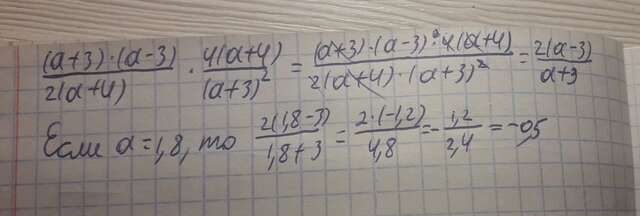 (a+3)·(a-3)/2(a+4) · 4(a+4)/(a+3)² = (a+3)·(a-3)·4(a+4)/2(a+4)·(a+3)² = 2(a-3)/a+3
Если a=1,8, то 2(1,8-3)/1,8+3 = 2·(-1,2)/4,8 = -1,2/2,4 = -0,5